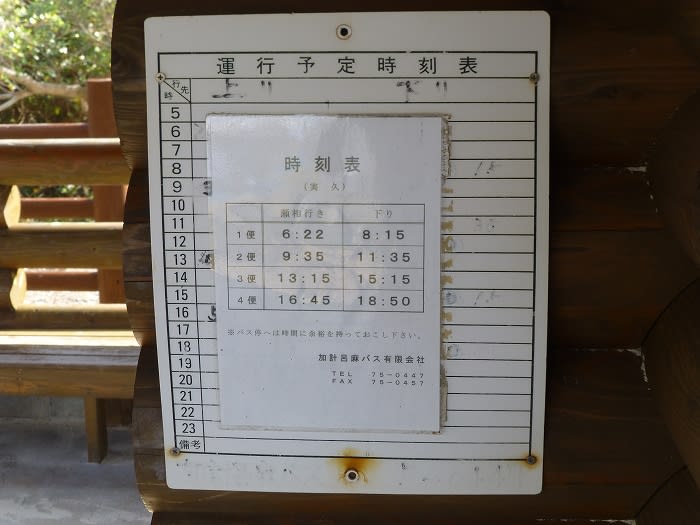 運行予定時刻表
行先
時
上り 下り
5
6
7
8
9
10
11
12
13
14
15
16
17
18
19
20
21
22
23
備考
時刻表
(実久)
瀬相行き 下り
1便 6:22 8:15
2便 9:35 11:35
3便 13:15 15:15
4便 16:45 18:50
※バス停へは時間に余裕を持っておこし下さい。
加計呂麻バス有限会社
TEL 75-0447
FAX 75-0457